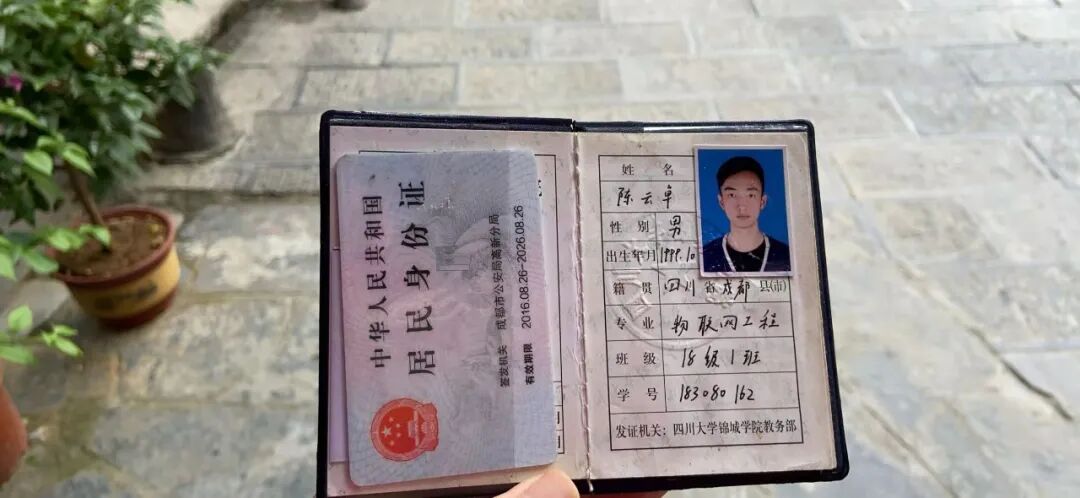 中华人民共和国
居民身份证
签发机关 成都市公安局高新分局
有效期限 2016.08.26-2026.08.26
姓名
陈云卓
性别 男
出生年月 1999.10
籍贯 四川省成都县(市)
专业 物联网工程
班级 18级1班
学号 183080162
发证机关：四川大学锦城学院教务部